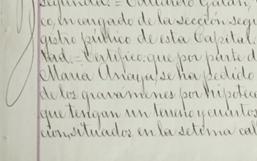 segunda.= Eduardo Galán,
co, encargado de la sección segu
gistro público de esta Capital
dad.= Certifico: que por parte d
María Anaya, se ha pedido
de los gravámenes por hipotec
que tengan un terreno y cuartos
ción, situados en la setima cal